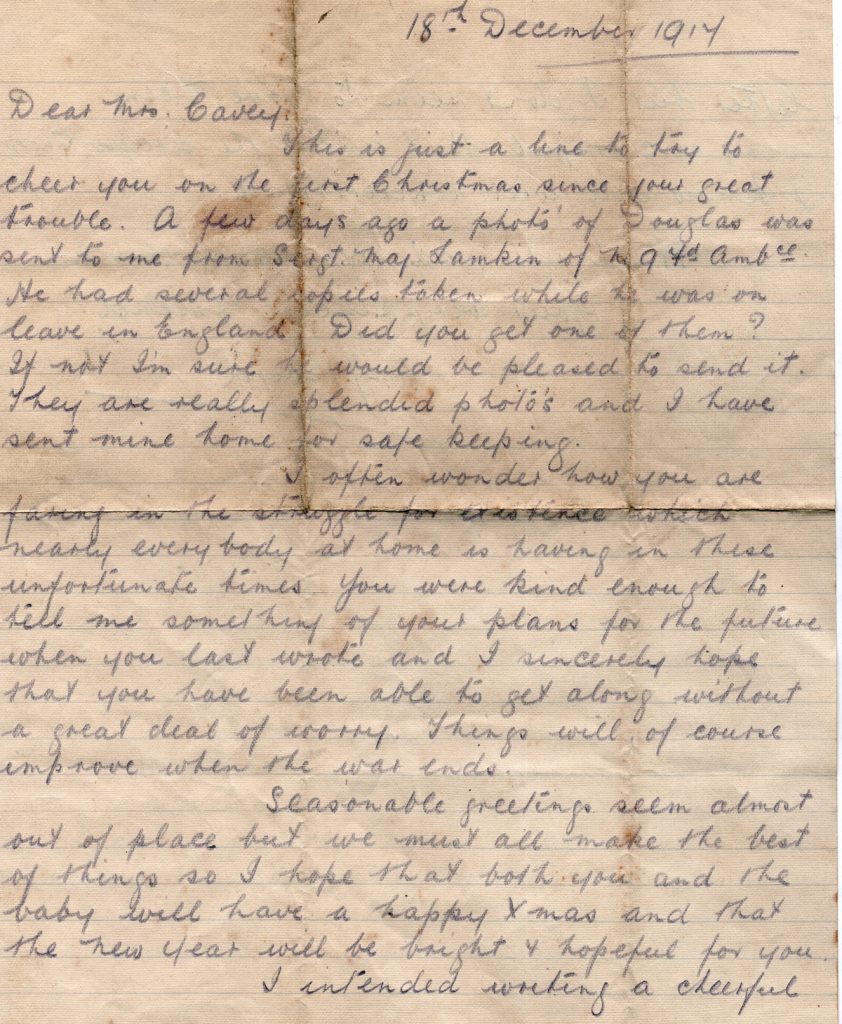 18th December 1917
Dear Mrs. Cavey.
This is just a line to try to
cheer you on the first Christmas since your great
trouble. A few days ago a photo' of Douglas was
sent to me from Sergt. Maj Lamkin of 94d Ambce.
He had several copies taken while he was on
leave in England. Did you get one of them?
If not I'm sure he would be pleased to send it.
They are really splendid photo's and I have
sent mine home for safe keeping.
I often wonder how you are
faring in the struggle for existence which
nearly everybody at home is having in these
unfortunate times. You were kind enough to
tell me something of your plans for the future
when you last wrote and I sincerely hope
that you have been able to get along without
a great deal of worry. Things will, of course
improve when the war ends.
Seasonable greetings seem almost
out of place but we must all make the best
of things so I hope that both you and the
baby will have a happy Xmas and that
the New Year will be bright & hopeful for you.
I intended writing a cheerful